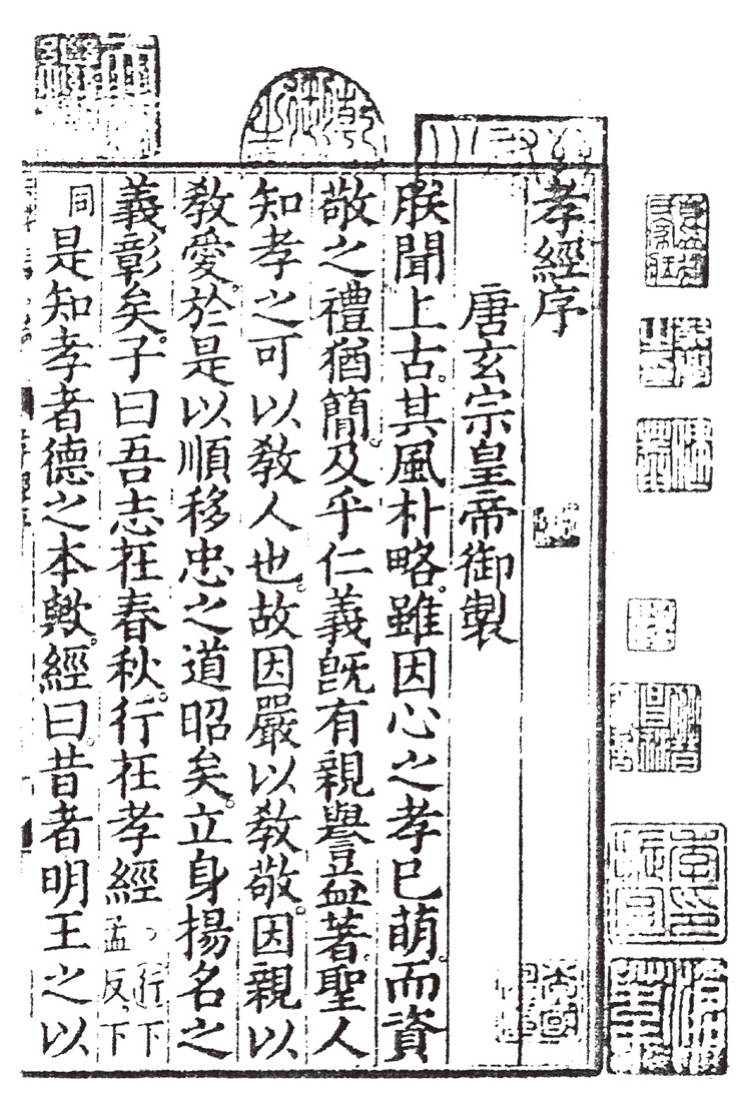 孝經序
唐玄宗皇帝御製
朕聞上古其風朴略雖因心之孝已萌而資
敬之禮猶簡及乎仁義旣有親譽益著聖人
知孝之可以敎人也故因嚴以敎敬因親以
敎愛於是以順移忠之道昭矣立身揚名之
義彰矣子曰吾志在春秋行在孝經行下孟反下
同是知孝者德之本歟經曰昔者明王之以